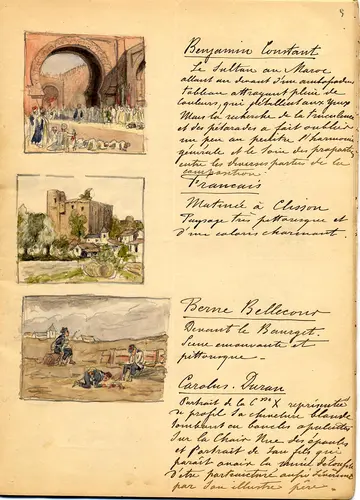 5
Benjamin Constant
Le Sultan au Maroc
allant au devant d'un ambassadeur
tableau attrayant plein de
couleurs, qui petillent aux yeux
Mais la recherche de la truculence
et des pétarades a fait oublier
un peu au peintre l'harmonie
générale et le soin des proportions
entre les diverses parties de la
composition.
Francais
Matinée à Clisson
Paysage très pittoresque et
d'un coloris charmant.
Berne Bellecour
Devant le Bourget.
Scene emouvante et
pittoresque -
Carolus. Duran
Portrait de la Ctesse X représentée
de profil sa chevelure blonde
tombant en boucles opulentes
sur la Chair Nue des épaules
et Portrait de son fils qui
paraît avoir la
d'etre
par son illustre père -